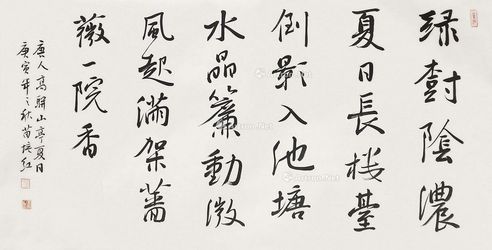 绿樹陰濃
夏日長楼臺
倒影入池塘
水晶簾動微
風起滿架薔
薇一院香
唐人高駢山亭夏日
庚寅年之秋苗培红